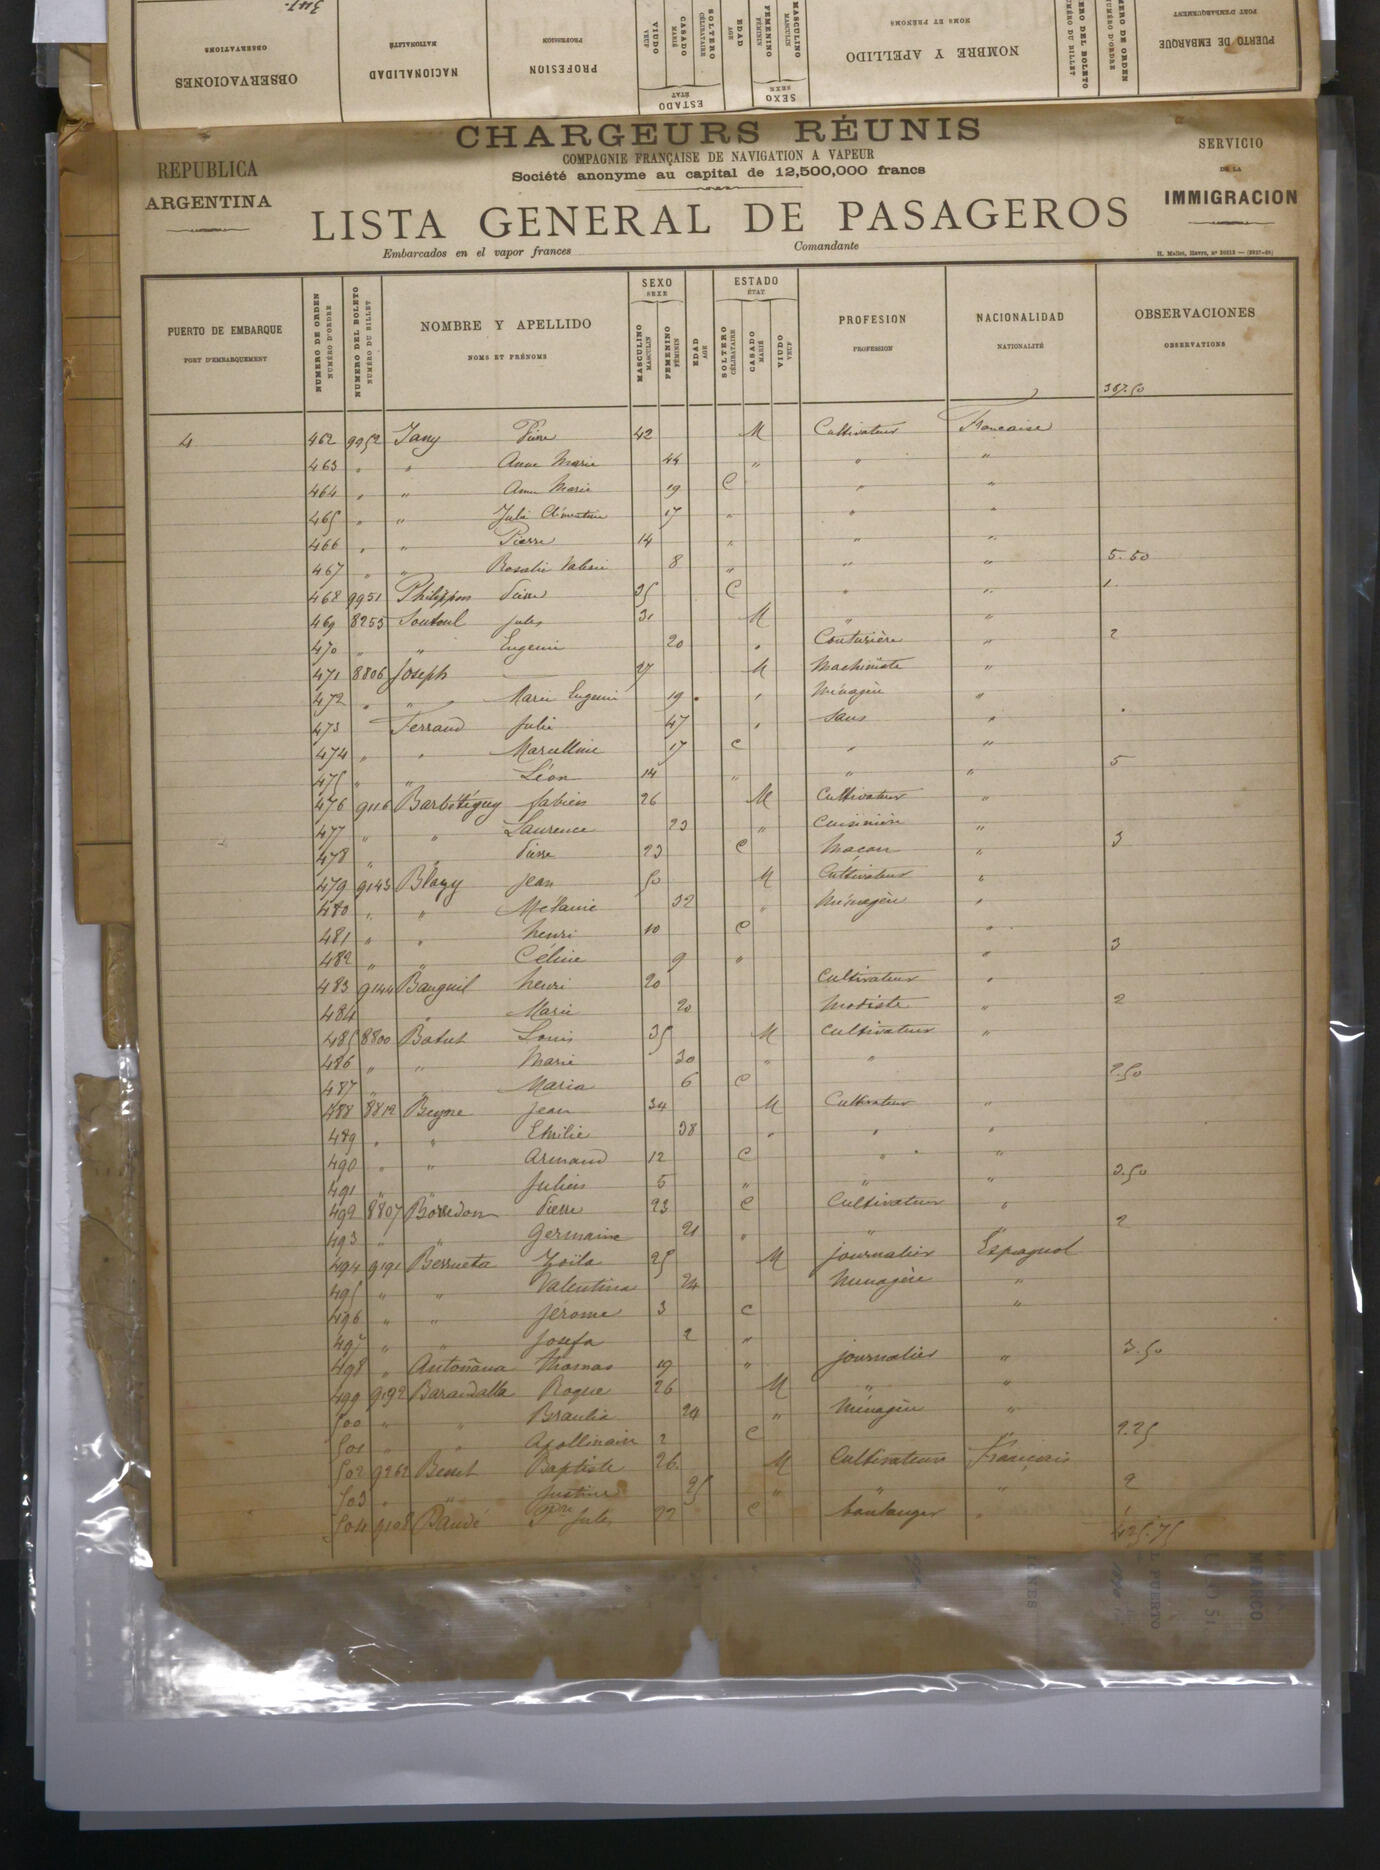 347.
OBSERVACIONES
OBSERVATIONS
NACIONALIDAD
NATIONALITÉ
PROFESION
PROFESSION
ESTADO
ÉTAT
VIUDO
VEUF
CASADO
MARIÉ
SOLTERO
CÉLIBATAIRE
EDAD
AGE
SEXO
SEXE
FEMENINO
FÉMININ
MASCULINO
MASCULIN
NOMBRE Y APELLIDO
NOMS ET PRÉNOMS
NUMERO DEL BOLETO
NUMÉRO DU BILLET
NUMERO DE ORDEN
NUMÉRO D'ORDRE
PUERTO DE EMBARQUE
PORT D'EMBARQUEMENT
CHARGEURS RÉUNIS
COMPAGNIE FRANÇAISE DE NAVIGATION A VAPEUR
Société anonyme au capital de 12,500,000 francs
REPUBLICA
ARGENTINA
SERVICIO
DE LA
IMMIGRACION
LISTA GENERAL DE PASAGEROS
Embarcados en el vapor frances Comandante
H. Mallet, Havre, nº 20213 — (2927-89)
PUERTO DE EMBARQUE
PORT D'EMBARQUEMENT
NUMERO DE ORDEN
NUMÉRO D'ORDRE
NUMERO DEL BOLETO
NUMÉRO DU BILLET
NOMBRE Y APELLIDO
NOMS ET PRÉNOMS
SEXO
SEXE
MASCULINO
MASCULIN
FEMENINO
FÉMININ
EDAD
AGE
ESTADO
ÉTAT
SOLTERO
CÉLIBATAIRE
CASADO
MARIÉ
VIUDO
VEUF
PROFESION
PROFESSION
NACIONALIDAD
NATIONALITÉ
OBSERVACIONES
OBSERVATIONS
387.50
4 462 9952 Jany Pierre 42 M Cultivateur Francaise
463 " " Anne Marie 44 " " "
464 " " Anne Marie 19 C " "
465 " " Julie Clémentine 17 " " "
466 " " Pierre 14 " " "
467 " " Rosalie Valerie 8 " " " 5.50
468 9951 Philippon Pierre 35 C " " 1
469 8253 Soutoul Jules 31 M " "
470 " " Eugenie 20 " Couturière " 2
471 8806 Joseph — 27 M Machiniste "
472 " " Marie Eugenie 19 " Ménagère "
473 Ferraud Julie 47 " Sans "
474 " " Marcelline 17 C " "
475 " " Léon 14 " " " 5
476 9116 Barbétéguy Fabien 26 M Cultivateur "
477 " " Laurence 23 " Cuisinière "
478 " " Pierre 23 C Macon " 3
479 9143 Blazy Jean 50 M Cultivateur "
480 " " Mélanie 32 " Ménagère "
481 " " henri 10 C "
482 " " Céline 9 " " 3
483 9144 Bauguil henri 20 Cultivateur "
484 " Marie 20 Modiste " 2
485 8800 Batut Louis 35 M Cultivateur "
486 " " Marie 30 " "
487 " " Maria 6 C 2.50
488 8812 Beyne Jean 34 M Cultivateur "
489 " " Emilie 38 " " "
490 " " Armand 12 C " "
491 " " Julien 5 " " " 3.50
492 8807 Borredon Pierre 23 C Cultivateur "
493 " " Germaine 21 " " " 2
494 9191 Berrueta Zoïla 25 M journalier Espagnol
495 " " Valentina 24 Menagère "
496 " " Jérome 3 C "
497 " " Josefa 2 "
498 " Antoñana Thomas 19 " journalier " 3.50
499 9192 Barandalla Roque 26 M " "
500 " " Braulia 24 " Ménagère "
501 " " Apollinaire 2 C " 2.25
502 9262 Benet Baptiste 26 M Cultivateur Français
503 " " Justine 25 " " " 2
504 9108 Baudé Pre Jules 22 C boulanger " 1
425.75